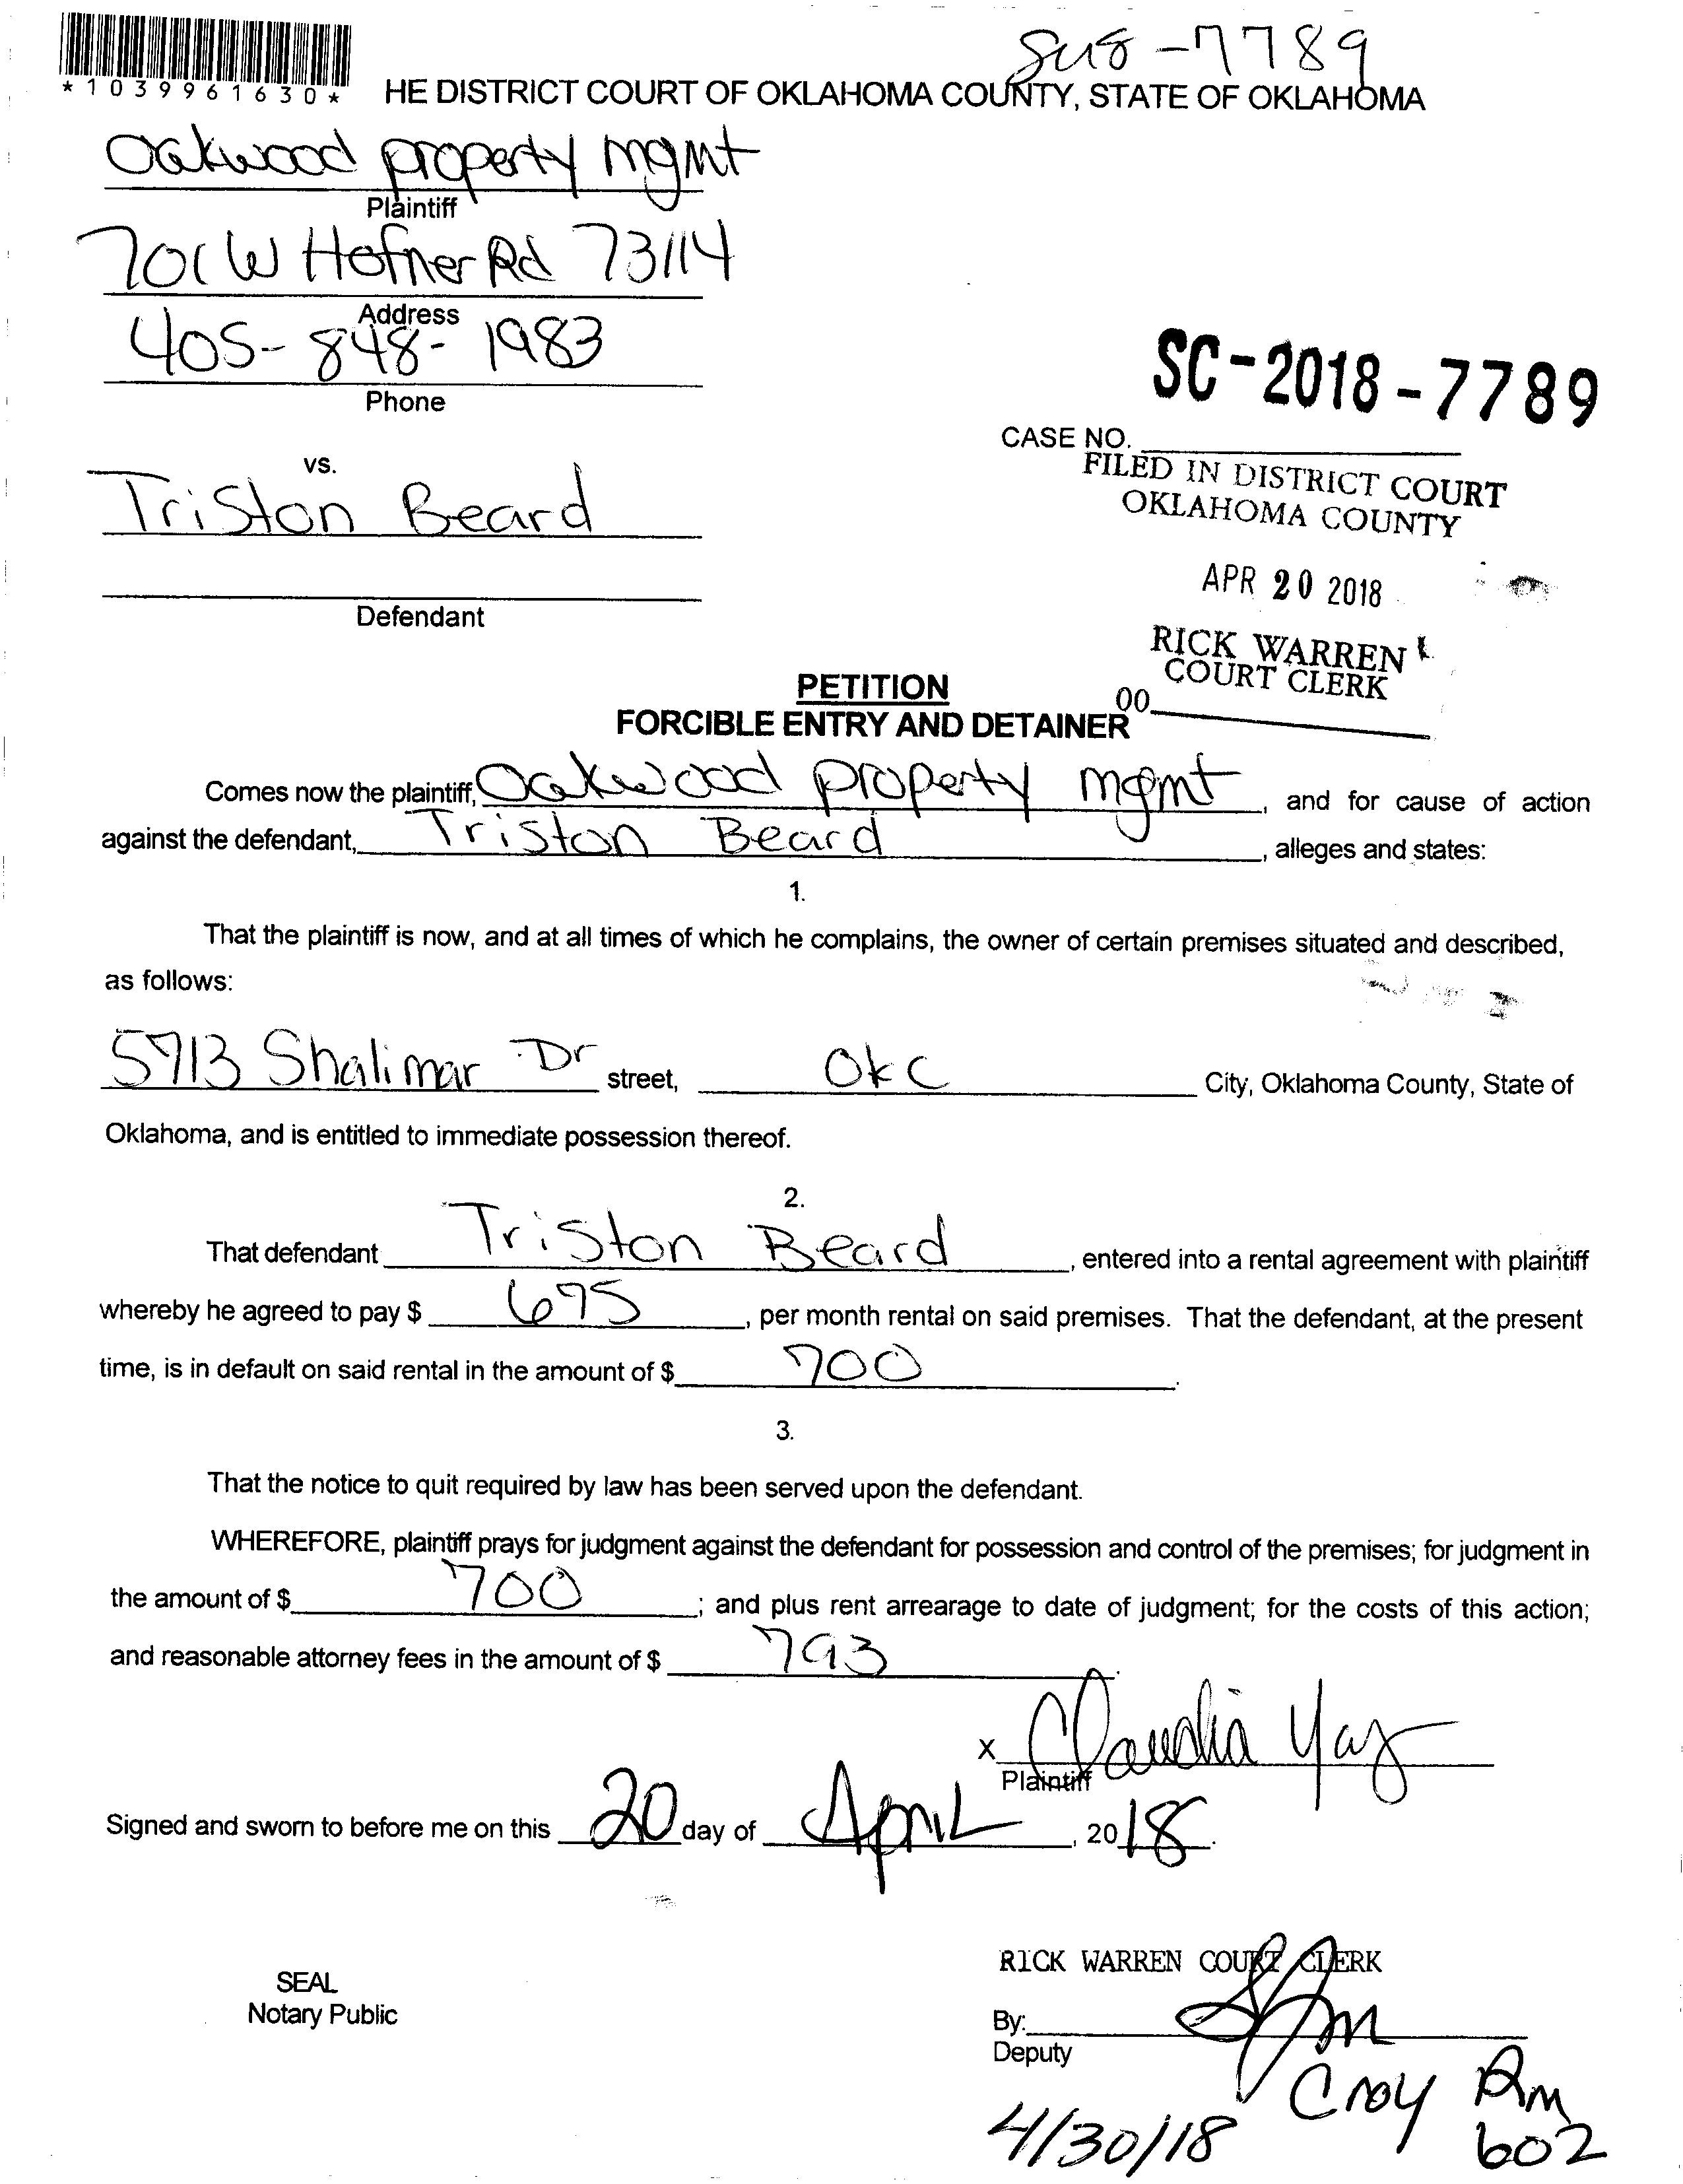 SC18-7789
*1039961630*
HE DISTRICT COURT OF OKLAHOMA COUNTY, STATE OF OKLAHOMA
Oakwood property mgmt
Plaintiff
701 W Hefner Rd 73114
Address
405-848-1983
Phone
SC-2018-7789
CASE NO.
vs.
FILED IN DISTRICT COURT
OKLAHOMA COUNTY
Triston Beard
APR 20 2018
Defendant
RICK WARREN
COURT CLERK
00
PETITION
FORCIBLE ENTRY AND DETAINER
Comes now the plaintiff, Oakwood property mgmt, and for cause of action
against the defendant, Triston Beard, alleges and states:
1.
That the plaintiff is now, and at all times of which he complains, the owner of certain premises situated and described,
as follows:
5913 Shalimar Dr street, OKC City, Oklahoma County, State of
Oklahoma, and is entitled to immediate possession thereof.
2.
That defendant Triston Beard, entered into a rental agreement with plaintiff
whereby he agreed to pay $ 695, per month rental on said premises. That the defendant, at the present
time, is in default on said rental in the amount of $ 700.
3.
That the notice to quit required by law has been served upon the defendant.
WHEREFORE, plaintiff prays for judgment against the defendant for possession and control of the premises; for judgment in
the amount of $ 700; and plus rent arrearage to date of judgment; for the costs of this action;
and reasonable attorney fees in the amount of $ 793.
x Claudia Yaz
Plaintiff
Signed and sworn to before me on this 20 day of April, 2018.
RICK WARREN COURT CLERK
SEAL
Notary Public
By:
Deputy
Croy Rm
4/30/18 602